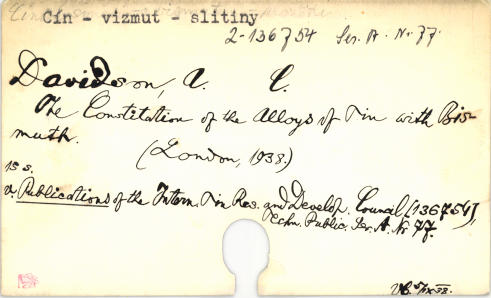 Cín - vizmut - slitiny
2-136754 Ser. A. Nr 77.
Davidson, V. C.
The Constitution of the Alloys of Tin with Bis-
muth.
(London, 1938.)
15 s.
v. Publications of the Intern. Tin Res. and Develop. Council [136754],
Techn. Public. Ser. A. Nr 77.